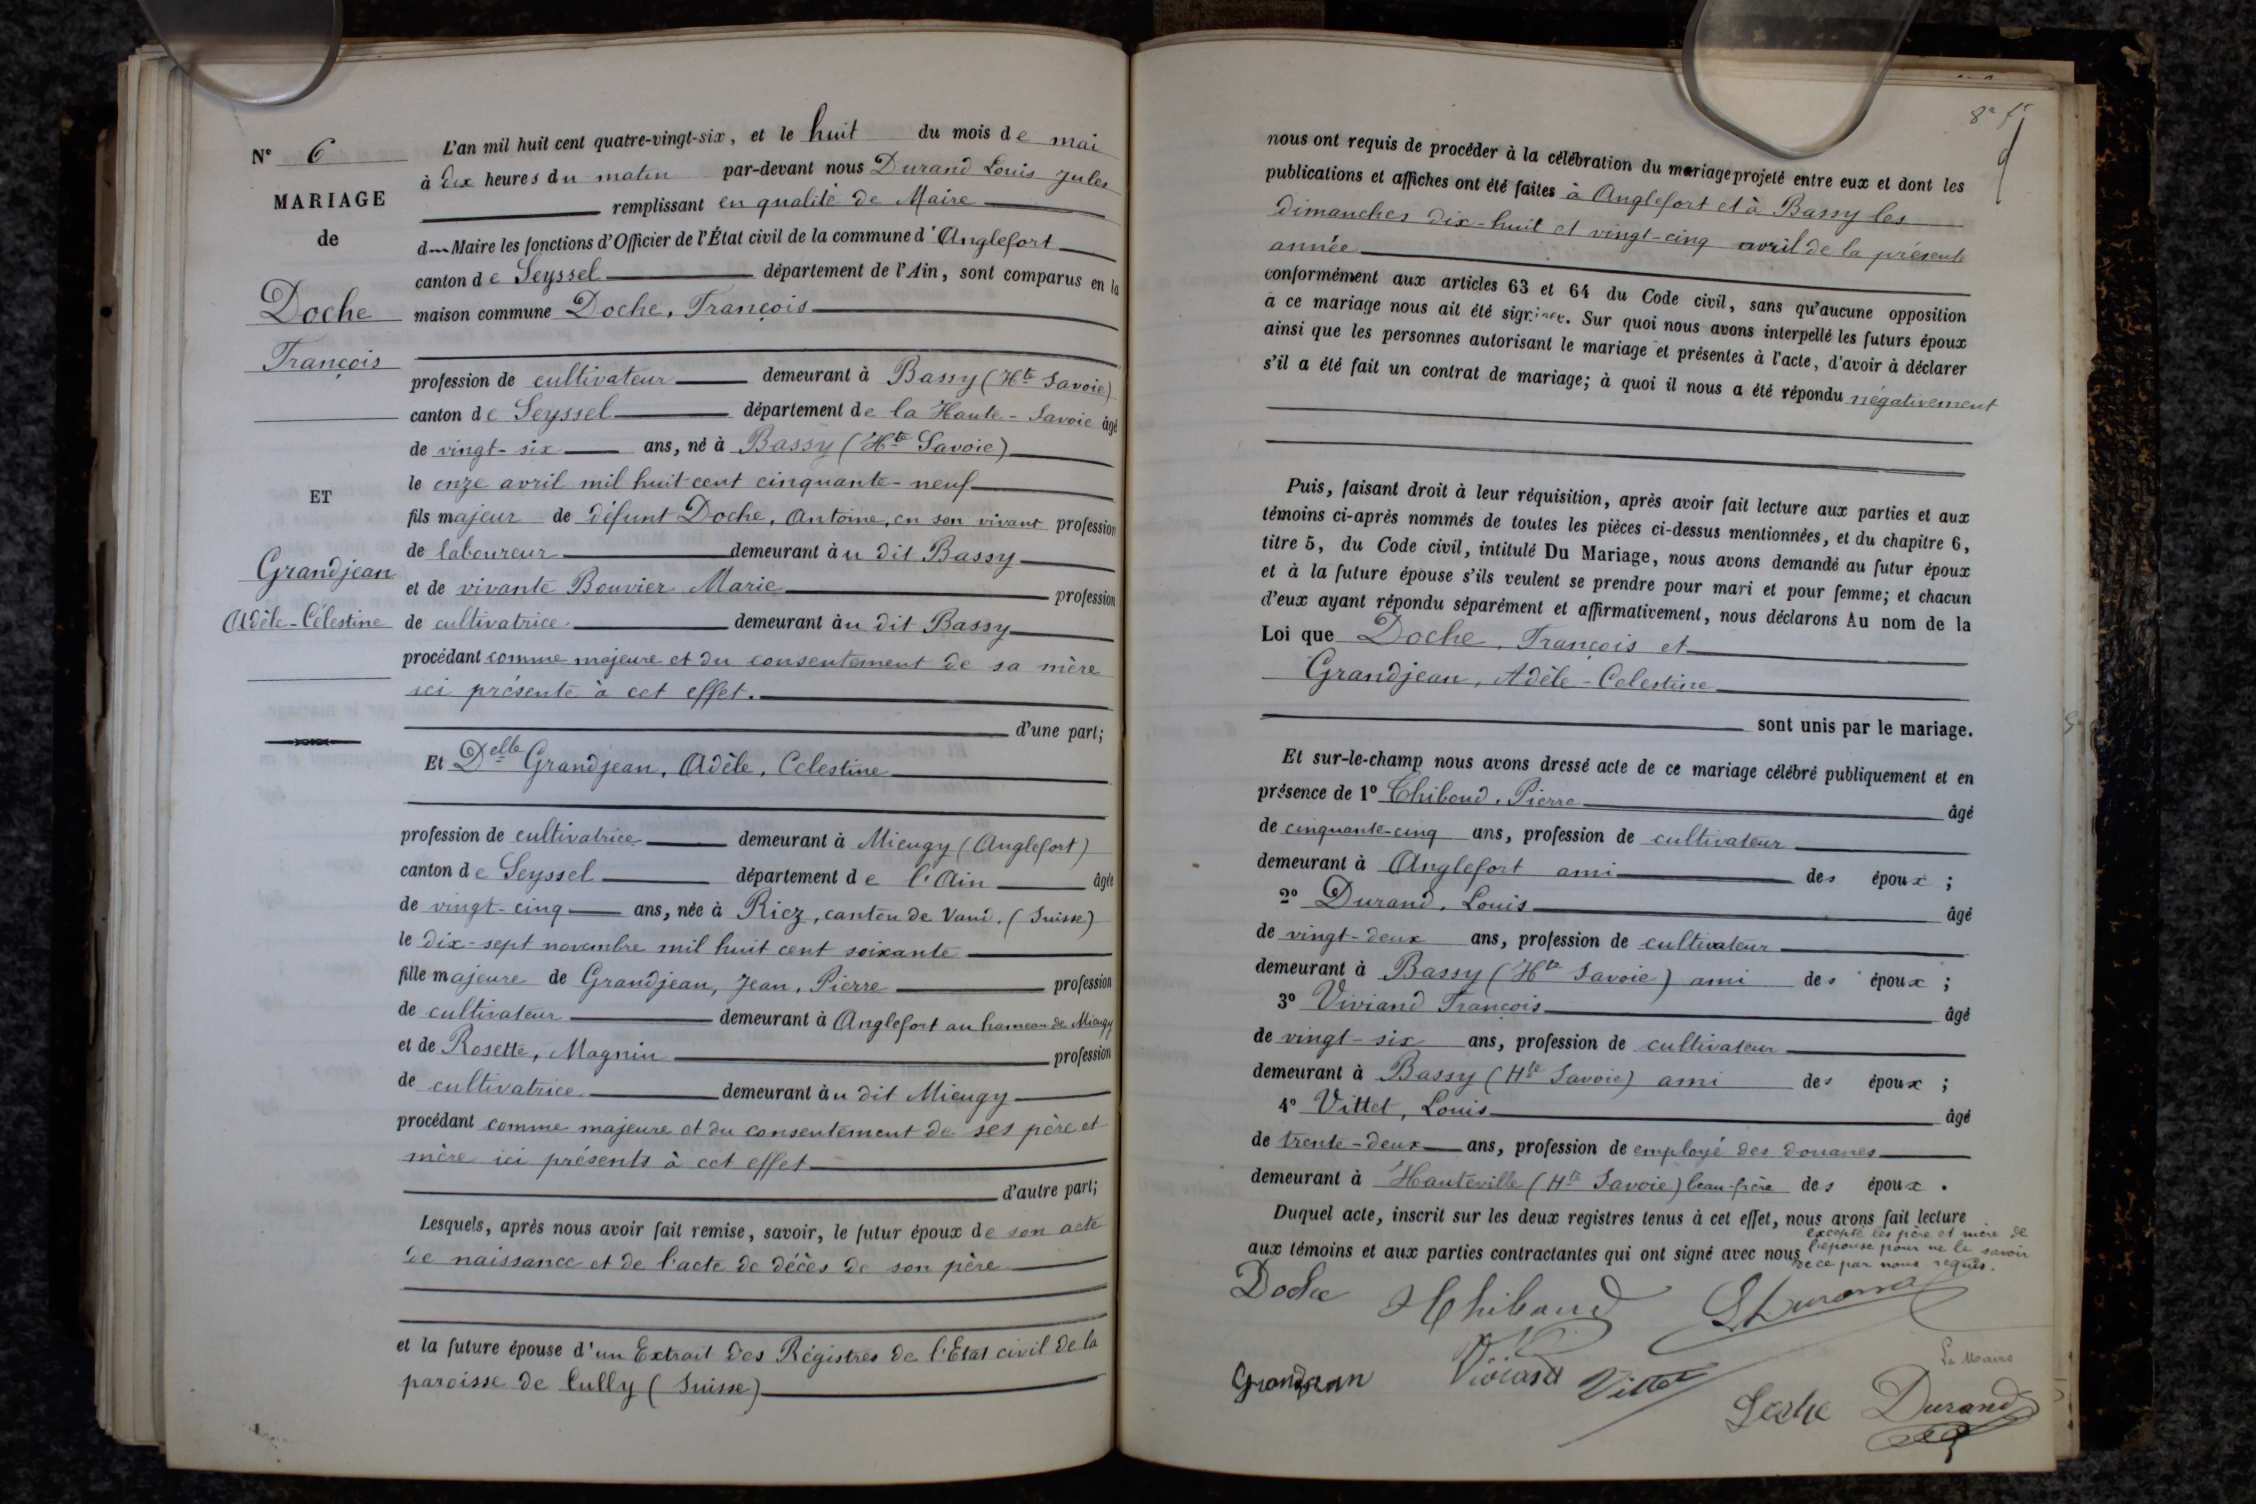 N° 6
MARIAGE
de
Doche
François
ET
Grandjean
Adèle-Célestine
L'an mil huit cent quatre-vingt-six, et le huit du mois de mai
à dix heures du matin par-devant nous Durand Louis Jules
remplissant en qualité de Maire
d Maire les fonctions d'Officier de l'État civil de la commune d'Anglefort
canton de Seyssel département de l'Ain, sont comparus en la
maison commune Doche, François
profession de cultivateur demeurant à Bassy (Hte Savoie)
canton de Seyssel département de la Haute-Savoie âgé
de vingt-six ans, né à Bassy (Hte Savoie)
le onze avril mil huit cent cinquante-neuf
fils majeur de défunt Doche, Antoine, en son vivant profession
de laboureur demeurant àu dit Bassy
et de vivante Bouvier Marie profession
de cultivatrice demeurant àu dit Bassy
procédant comme majeure et du consentement de sa mère
ici présente à cet effet.
d'une part;
Et Delle Grandjean, Adèle, Celestine
profession de cultivatrice demeurant à Mieugy (Anglefort)
canton de Seyssel département de l'Ain âgée
de vingt-cinq ans, née à Riez, canton de Vaud. (Suisse)
le dix-sept novembre mil huit cent soixante
fille majeure de Grandjean, Jean, Pierre profession
de cultivateur demeurant à Anglefort au hameau de Mieugy
et de Rosette, Magnin profession
de cultivatrice demeurant àu dit Mieugy
procédant comme majeure et du consentement de ses père et
mère ici présents à cet effet
d'autre part;
Lesquels, après nous avoir fait remise, savoir, le futur époux de son acte
de naissance et de l'acte de décès de son père
et la future épouse d'un Extrait des Régistres de l'Etat civil de la
paroisse de Cully (Suisse)
nous ont requis de procéder à la célébration du mariage projeté entre eux et dont les
publications et affiches ont été faites à Anglefort et à Bassy les
dimanches dix-huit et vingt-cinq avril de la présente
année
conformément aux articles 63 et 64 du Code civil, sans qu'aucune opposition
à ce mariage nous ait été signifiée. Sur quoi nous avons interpellé les futurs époux
ainsi que les personnes autorisant le mariage et présentes à l'acte, d'avoir à déclarer
s'il a été fait un contrat de mariage; à quoi il nous a été répondu négativement
Puis, faisant droit à leur réquisition, après avoir fait lecture aux parties et aux
témoins ci-après nommés de toutes les pièces ci-dessus mentionnées, et du chapitre 6,
titre 5, du Code civil, intitulé Du Mariage, nous avons demandé au futur époux
et à la future épouse s'ils veulent se prendre pour mari et pour femme; et chacun
d'eux ayant répondu séparément et affirmativement, nous déclarons Au nom de la
Loi que Doche, François et
Grandjean, Adèle-Celestine
sont unis par le mariage.
Et sur-le-champ nous avons dressé acte de ce mariage célébré publiquement et en
présence de 1° Thiboud, Pierre âgé
de cinquante-cinq ans, profession de cultivateur
demeurant à Anglefort ami des époux;
2° Durand, Louis âgé
de vingt-deux ans, profession de cultivateur
demeurant à Bassy (Hte Savoie) ami des époux;
3° Viviand François âgé
de vingt-six ans, profession de cultivateur
demeurant à Bassy (Hte Savoie) ami des époux;
4° Vittet, Louis âgé
de trente-deux ans, profession de employé des douanes
demeurant à Hauteville (Hte Savoie) beau-frère des époux.
Duquel acte, inscrit sur les deux registres tenus à cet effet, nous avons fait lecture
aux témoins et aux parties contractantes qui ont signé avec nous excepté les père et mère de
l'épouse pour ne le savoir
de ce par nous requis.
Doche Thiboud L Durand
Grandjean Viviand Vittet
Le Maire
Doche Durand